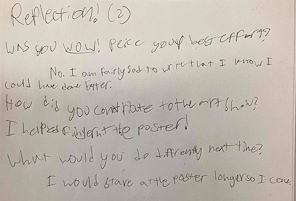 Reflection! (2)
Was your WOW! Peice your best effort?
No. I am fairly sad to write that I know I
could have done better.
How did you contribute to the art show?
I helped the poster!
What would you do differently next time?
I would stare at the poster longer so I